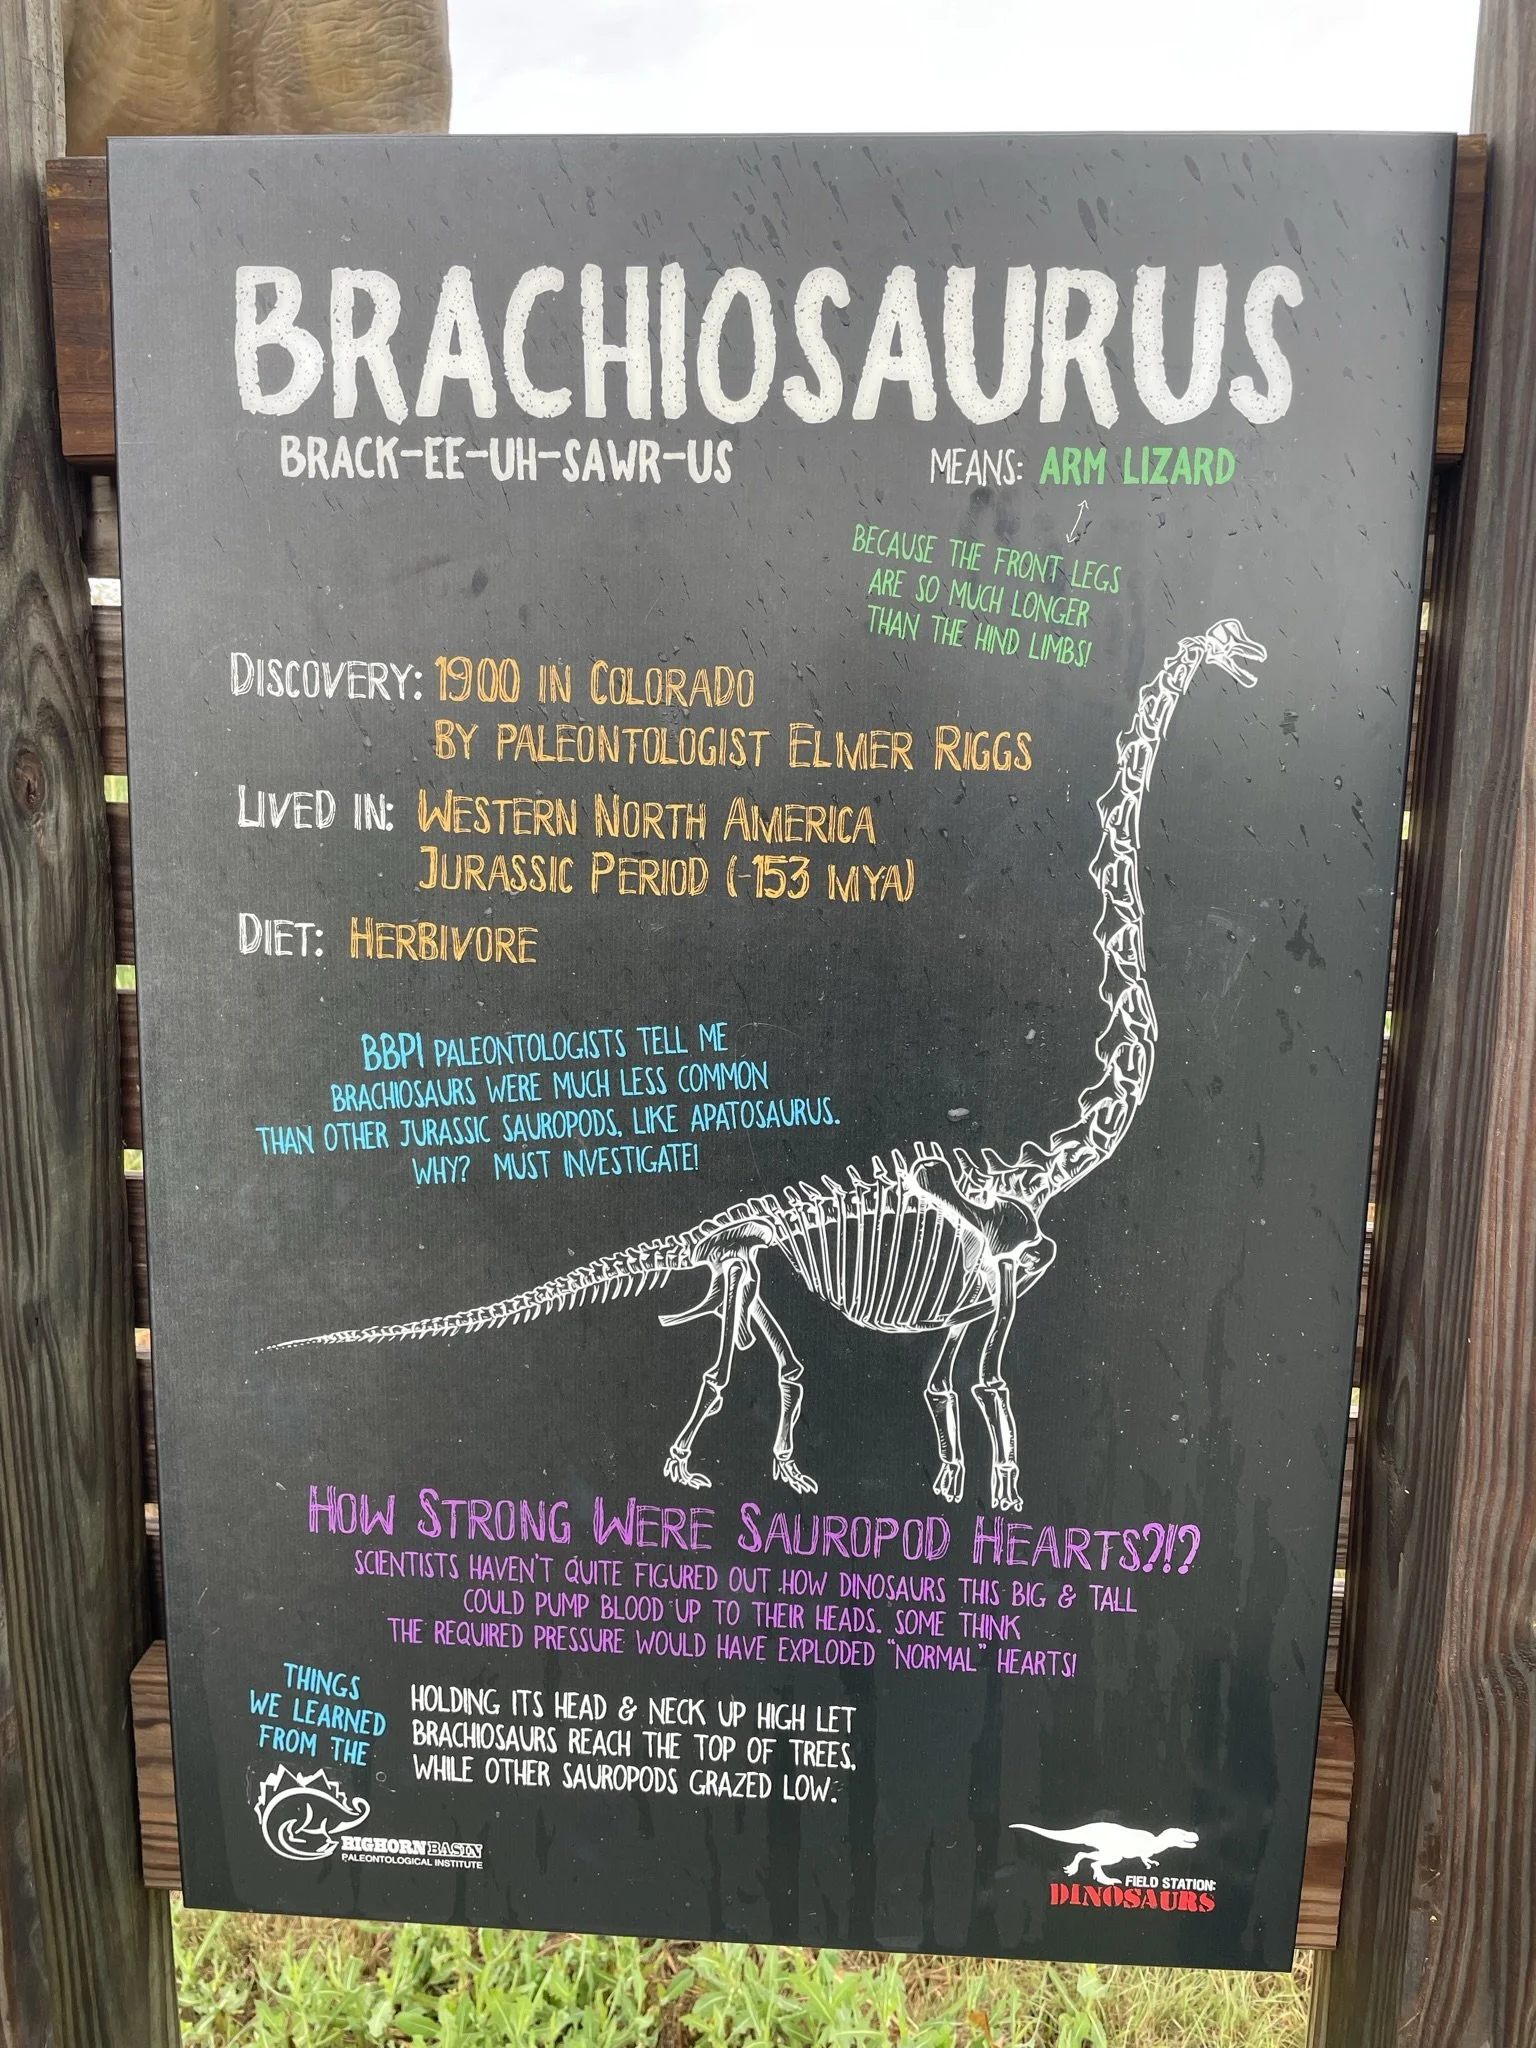 BRACHIOSAURUS
BRACK-EE-UH-SAWR-US
MEANS: ARM LIZARD
BECAUSE THE FRONT LEGS
ARE SO MUCH LONGER
THAN THE HIND LIMBS!
DISCOVERY: 1900 IN COLORADO
BY PALEONTOLOGIST ELMER RIGGS
LIVED IN: WESTERN NORTH AMERICA
JURASSIC PERIOD (~153 MYA)
DIET: HERBIVORE
BBPI PALEONTOLOGISTS TELL ME
BRACHIOSAURS WERE MUCH LESS COMMON
THAN OTHER JURASSIC SAUROPODS, LIKE APATOSAURUS.
WHY? MUST INVESTIGATE!
HOW STRONG WERE SAUROPOD HEARTS?!?
SCIENTISTS HAVEN'T QUITE FIGURED OUT HOW DINOSAURS THIS BIG & TALL
COULD PUMP BLOOD UP TO THEIR HEADS. SOME THINK
THE REQUIRED PRESSURE WOULD HAVE EXPLODED "NORMAL" HEARTS!
THINGS
WE LEARNED
FROM THE
BIGHORN BASIN
PALEONTOLOGICAL INSTITUTE
HOLDING ITS HEAD & NECK UP HIGH LET
BRACHIOSAURS REACH THE TOP OF TREES,
WHILE OTHER SAUROPODS GRAZED LOW.
FIELD STATION:
DINOSAURS